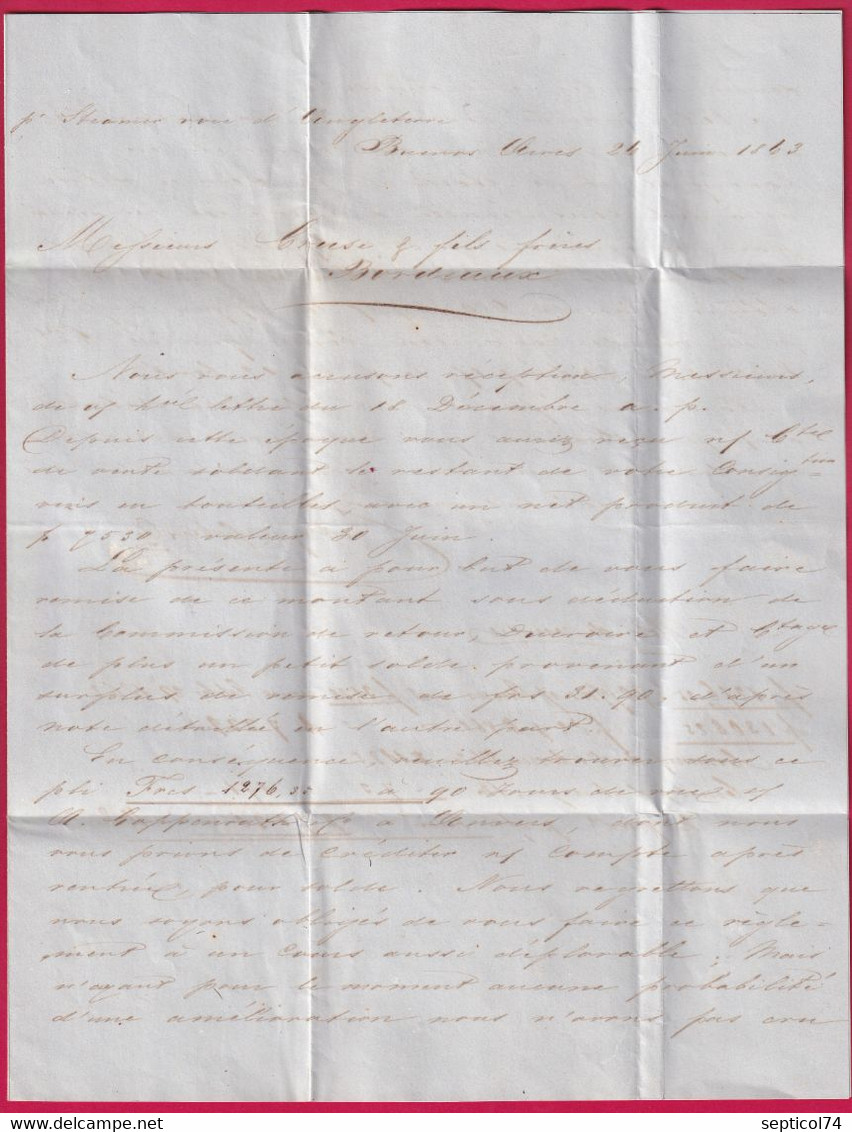 pr Steamer voie d'Angleterre
Buenos Aires 24 Juin 1863
Messieurs Cruse & fils frères
Bordeaux
Nous vous accusons réception, Messieurs,
de lettre du 18 Décembre a. p.
Depuis cette époque vous aurez reçu n/ Cte
de vente soldant le restant de votre Consigtion
vins en bouteilles avec un net produit de
p 7530 valeur 30 Juin.
La présente a pour but de vous faire
remise de ce montant sous déduction de
la Commission de retour, Ducroire et Ctage
de plus un petit solde provenant d'un
surplus de remise de frs 31.90, d'après
note détaillée en l'autre part.
En conséquence veuillez trouver sous ce
pli Frcs 1276,35 à 90 jours de vue s/
à Anvers, dont nous
vous prions de créditer n/ Compte après
rentrée, pour solde. Nous regrettons que
nous soyons obligés de vous faire ce règle-
ment à un cours aussi déplorable; Mais
n'ayant pour le moment aucune probabilité
d'une amélioration nous n'avons pas cru
septicol74